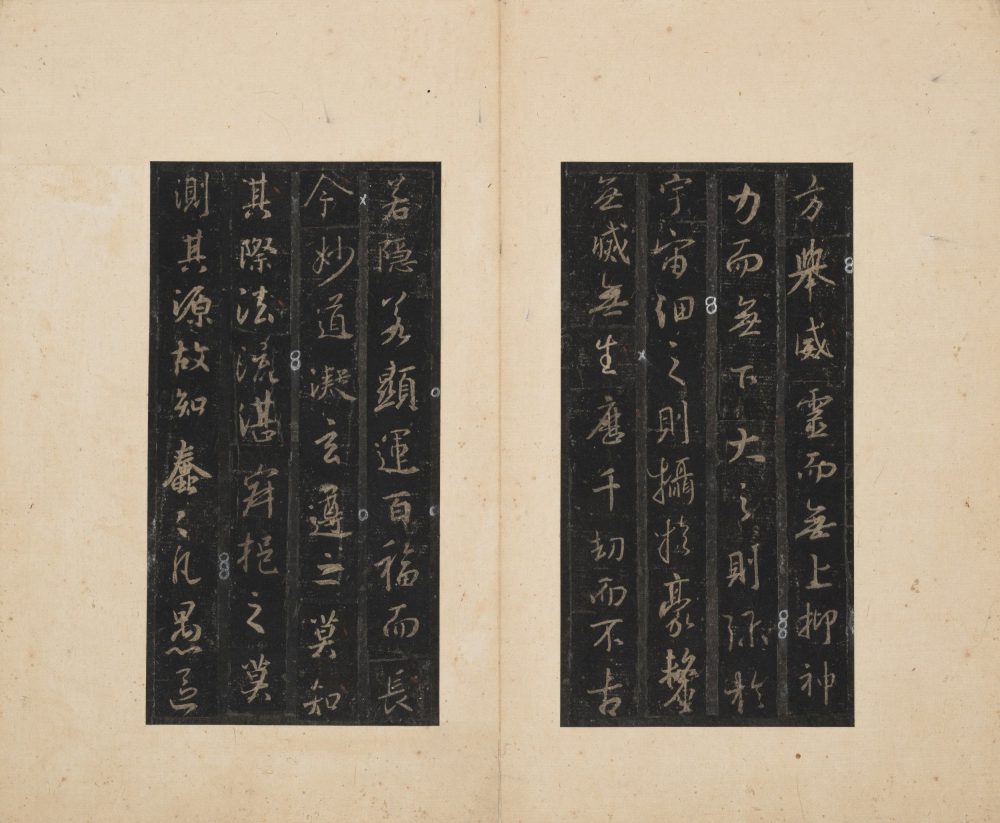 方舉威靈而無上抑神
力而無下大之則彌於
宇宙細之則攝於豪釐
無滅無生歷千劫而不古
若隱若顯運百福而長
今妙道凝玄遵之莫知
其際法流湛寂挹之莫
測其源故知蠢々凡愚區